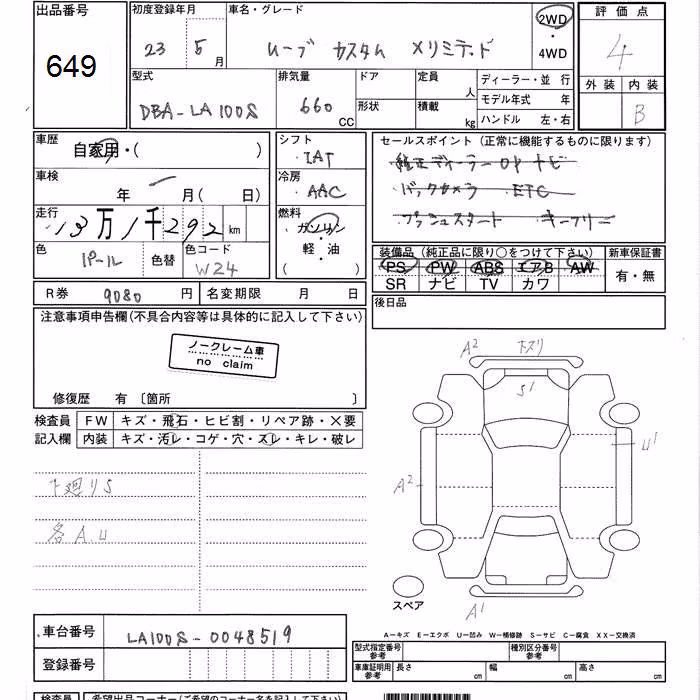 出品番号 初度登録年月 車名・グレード 2WD・4WD 評価点
649 23年 5月 ムーブ カスタム Xリミテッド 4
型式 排気量 ドア 定員 人 ディーラー・並行 外装 内装
DBA-LA100S 660cc 形状 積載 kg モデル年式 年 B
ハンドル 左・右
車歴 自家用・( ) シフト IAT セールスポイント(正常に機能するものに限ります)
車検 年 月( 日) 冷房 AAC 純正ディーラーOPナビ
バックカメラ ETC
走行 13万1千292km 燃料 ガソリン プッシュスタート キーフリー
軽・油
色 パール 色替 色コード W24 ( ) 装備品(純正品に限り○をつけて下さい) 新車保証書
PS PW ABS エアB AW 有・無
R券 9080円 名変期限 月 日 SR ナビ TV カワ
注意事項申告欄(不具合内容等は具体的に記入して下さい) 後日品
ノークレーム車
no claim
修復歴 有〔箇所 〕
検査員 FW キズ・飛石・ヒビ割・リペア跡・×要
記入欄 内装 キズ・汚レ・コゲ・穴・スレ・キレ・破レ
A2 下スリ
S1
下廻りS U1
A2
各A.U
スペア A1
A-キズ E-エクボ U-凹み W-補修跡 S-サビ C-腐食 XX-交換済
車台番号 LA100S-0048519
登録番号 型式指定番号 参考 種別区分番号 参考
車庫証明用 参考 長さ cm 幅 cm 高さ cm
検査員 希望出品コーナー(ご希望のコーナー名を記入して下さい)